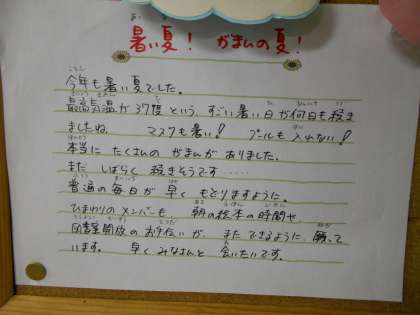 暑い夏！ がまんの夏！
今年も暑い夏でした。
最高気温が37度という、すごい暑い日が何日も続き
ましたね。 マスクも暑い！ プールも入れない！
本当に たくさんの がまんが ありました。
まだ しばらく 続きそうです……
普通の毎日が 早く もどりますように。
ひまわりのメンバーも 朝の絵本の時間や
図書開放の お手伝いが、 また できるように 願って
います。 早く みなさんと 会いたいです。